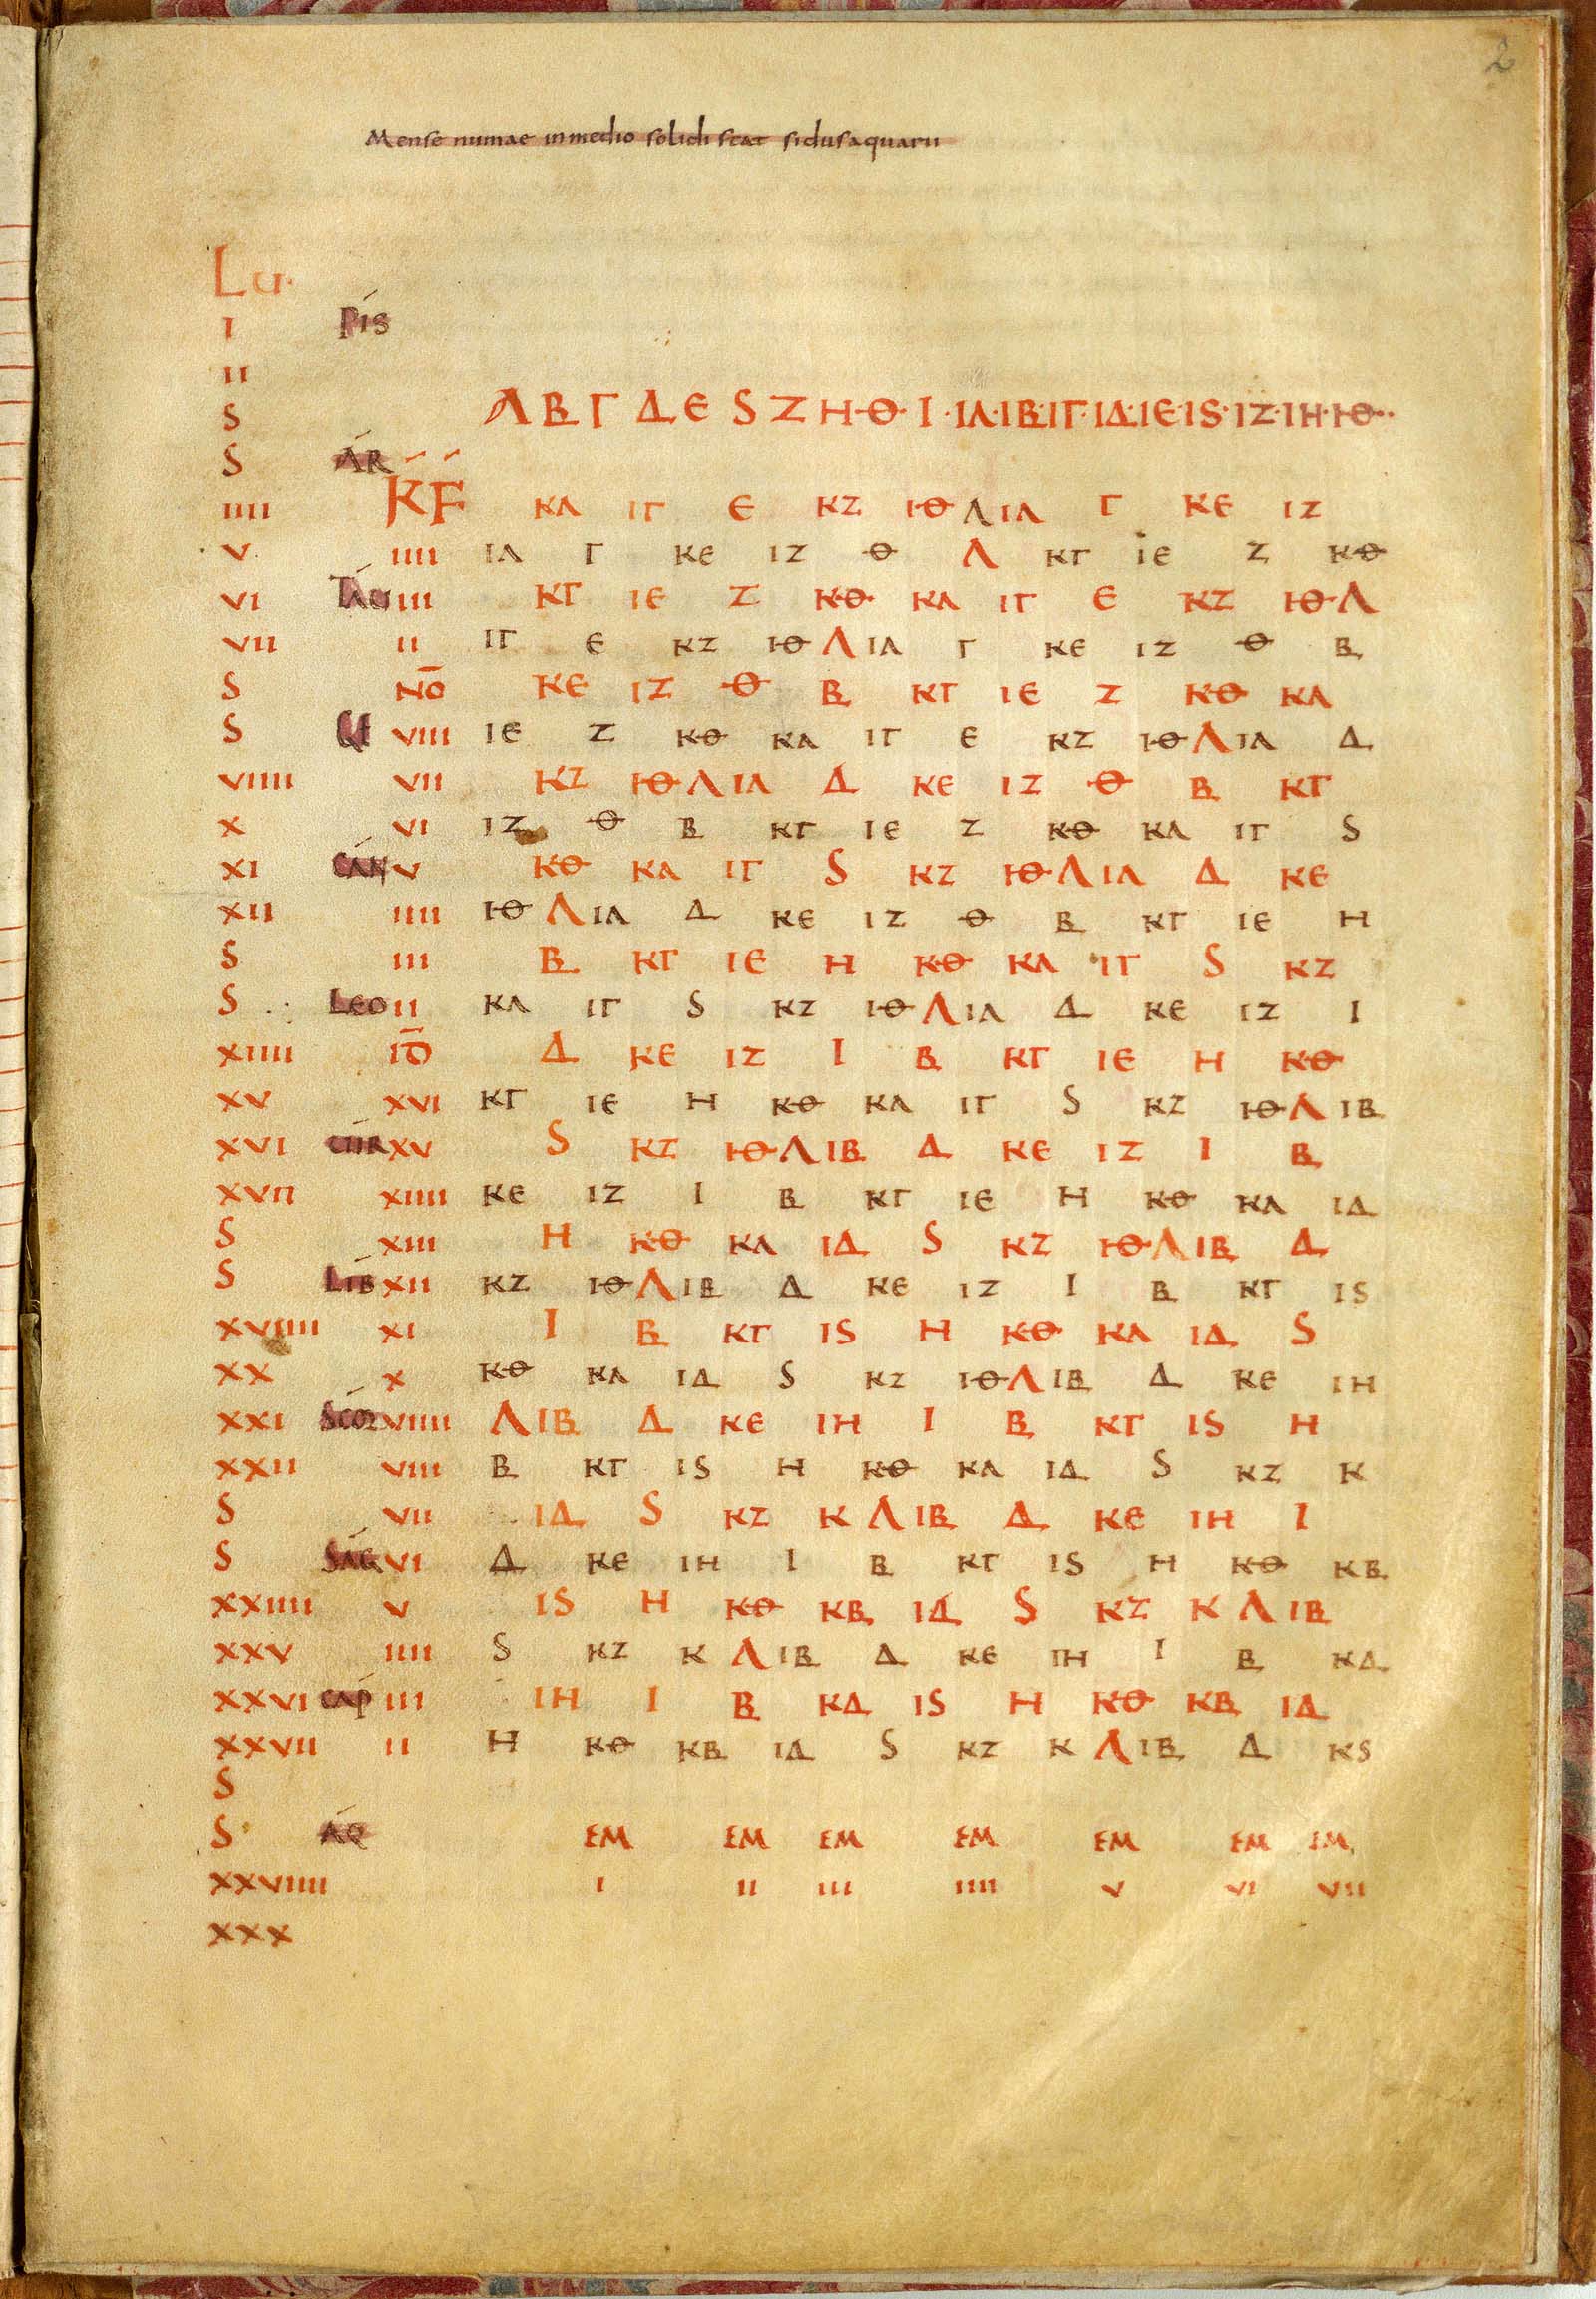 2
Mense numae in medio solidi stat sidus aquarii
Lu·
I PIS
II
S Α Β Γ Δ Ε S Ζ Η Θ · Ι · ΙΑ · ΙΒ · ΙΓ · ΙΔ · ΙΕ · ΙS · ΙΖ · ΙΗ · ΙΘ ·
S AR
IIII KF ΚΑ ΙΓ Ε ΚΖ ΙΘ Α ΙΑ Γ ΚΕ ΙΖ
V IIII ΙΑ Γ ΚΕ ΙΖ Θ Α ΚΓ ΙΕ Ζ ΚΘ
VI TAU III ΚΓ ΙΕ Ζ ΚΘ ΚΑ ΙΓ Ε ΚΖ ΙΘ Α
VII II ΙΓ Ε ΚΖ ΙΘ Α ΙΑ Γ ΚΕ ΙΖ Θ Β
S NO ΚΕ ΙΖ Θ Β ΚΓ ΙΕ Ζ ΚΘ ΚΑ
S VIII ΙΕ Ζ ΚΘ ΚΑ ΙΓ Ε ΚΖ ΙΘ Α ΙΑ Δ
VIIII VII ΚΖ ΙΘ Α ΙΑ Δ ΚΕ ΙΖ Θ Β ΚΓ
X VI ΙΖ Θ Β ΚΓ ΙΕ Ζ ΚΘ ΚΑ ΙΓ S
XI CAN V ΚΘ ΚΑ ΙΓ S ΚΖ ΙΘ Α ΙΑ Δ ΚΕ
XII IIII ΙΘ Α ΙΑ Δ ΚΕ ΙΖ Θ Β ΚΓ ΙΕ Η
S III Β ΚΓ ΙΕ Η ΚΘ ΚΑ ΙΓ S ΚΖ
S LEO II ΚΑ ΙΓ S ΚΖ ΙΘ Α ΙΑ Δ ΚΕ ΙΖ Ι
XIIII ID Δ ΚΕ ΙΖ Ι Β ΚΓ ΙΕ Η ΚΘ
XV XVI ΚΓ ΙΕ Η ΚΘ ΚΑ ΙΓ S ΚΖ ΙΘ Α ΙΒ
XVI UIR XV S ΚΖ ΙΘ Α ΙΒ Δ ΚΕ ΙΖ Ι Β
XVII XIIII ΚΕ ΙΖ Ι Β ΚΓ ΙΕ Η ΚΘ ΚΑ ΙΔ
S XIII Η ΚΘ ΚΑ ΙΔ S ΚΖ ΙΘ Α ΙΒ Δ
S LIB XII ΚΖ ΙΘ Α ΙΒ Δ ΚΕ ΙΖ Ι Β ΚΓ ΙS
XVIIII XI Ι Β ΚΓ ΙS Η ΚΘ ΚΑ ΙΔ S
XX X ΚΘ ΚΑ ΙΔ S ΚΖ ΙΘ Α ΙΒ Δ ΚΕ ΙΗ
XXI SCOR VIIII Α ΙΒ Δ ΚΕ ΙΗ Ι Β ΚΓ ΙS Η
XXII VIII Β ΚΓ ΙS Η ΚΘ ΚΑ ΙΔ S ΚΖ Κ
S VII ΙΔ S ΚΖ Κ Α ΙΒ Δ ΚΕ ΙΗ Ι
S SAG VI Δ ΚΕ ΙΗ Ι Β ΚΓ ΙS Η ΚΘ ΚΒ
XXIIII V ΙS Η ΚΘ ΚΒ ΙΔ S ΚΖ Κ Α ΙΒ
XXV IIII S ΚΖ Κ Α ΙΒ Δ ΚΕ ΙΗ Ι Β ΚΔ
XXVI CAP III ΙΗ Ι Β ΚΔ ΙS Η ΚΘ ΚΒ ΙΔ
XXVII II Η ΚΘ ΚΒ ΙΔ S ΚΖ Κ Α ΙΒ Δ ΚS
S
S AQ EM EM EM EM EM EM EM
XXVIIII I II III IIII V VI VII
XXX